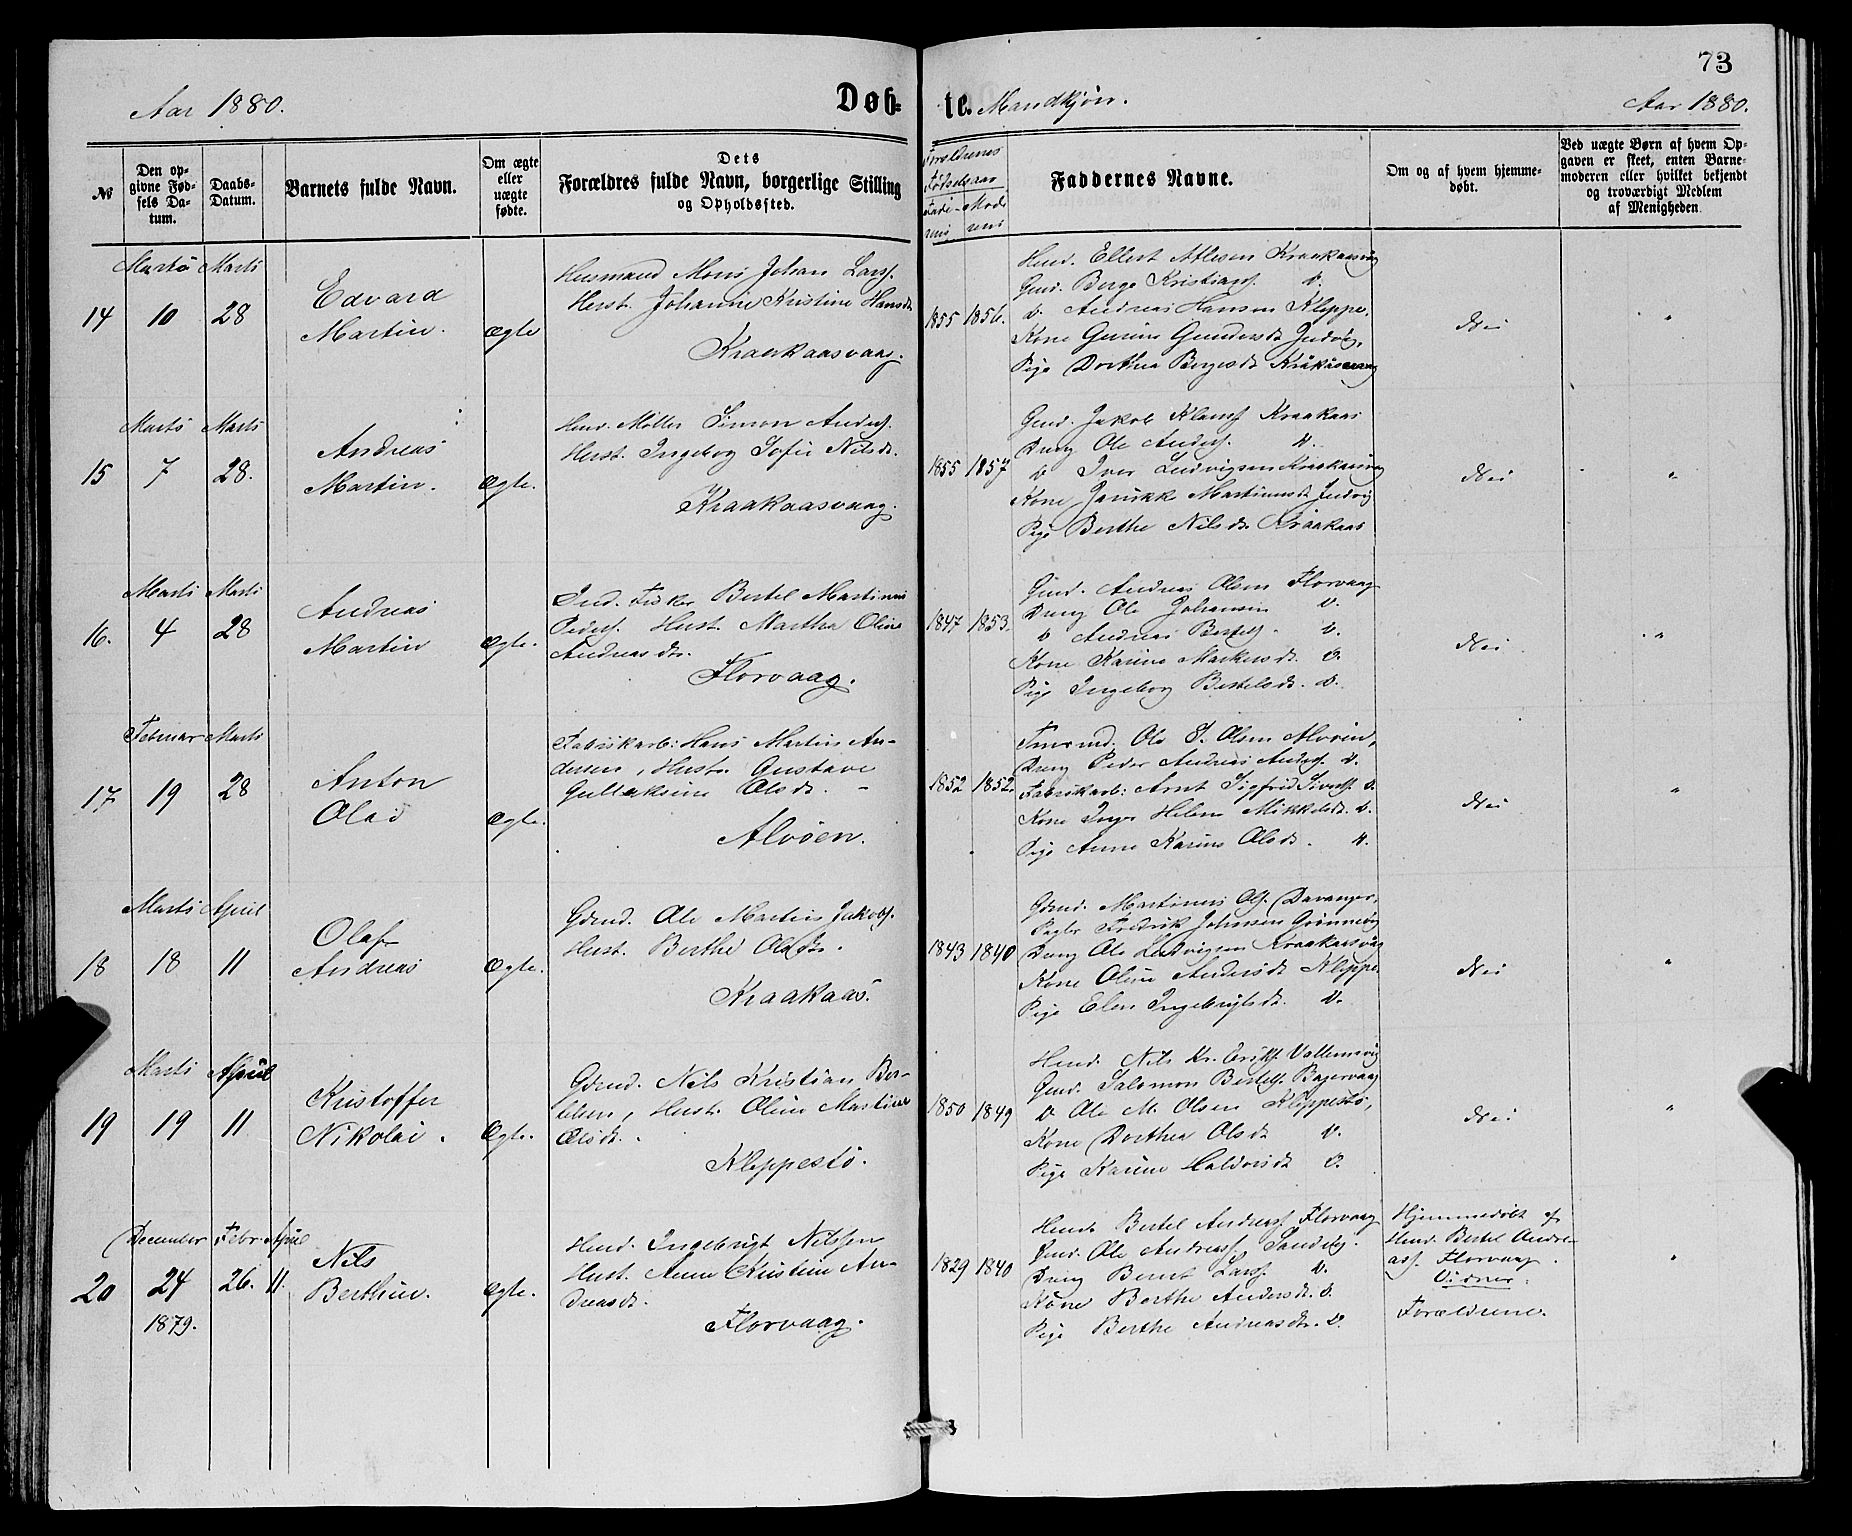 73
Aar 1880. Døbte. Mandkjøn. Aar 1880.
№
Den opgivne Fødsels Datum.
Daabs-Datum.
Barnets fulde Navn.
Om ægte eller uægte fødte.
Dets Forældres fulde Navn, borgerlige Stilling og Opholdssted.
Forældrenes Fødselsaar
Faderens Moderens
Faddernes Navne.
Om og af hvem hjemmedøbt.
Ved uægte Børn af hvem Opgaven er skeet, enten Barnemoderen eller hvilket bekjendt og troværdigt Medlem af Menigheden
14
Marts 10
Marts 28
Edvard
Martin.
ægte
Husmand Mons Johan Larss.
Hust. Johanne Kristine Hansdr
Kraakaasvaag.
1855 1856.
Husd. Ellert Kraakaasvåg
Gmd. Børge Kristians. D.
D. Andreas Hansen Kleppe,
Kone Gurine Gundersdr Indvig,
Pige Dorthea Børgesdr Kråkåsvaag
Nei
"
15
Marts 7
Marts 28.
Andreas
Martin.
Ægte.
Husm. Møller Simon Anders.
Hust. Ingeborg Sofie Nilsdr.
Kraakaasvaag.
1855 1857
Gmd. Jakob Klauss Kraakaas
Dreng Ole Anders. D.
D Iver Ludvigsen Kraakaasvåg
Kone Martinusdr Indvig
Pige Berthe Nilsdr. Kraakaas
Nei
"
16.
Marts 4
Marts 28
Andreas
Martin
Ægte.
Ind. Fisker Bertel Martinus
Peders. Hust. Martha Oline
Andreasdr.
Florvaag.
1847 1853.
Gmd. Andreas Olsen Florvaag
Dreng Ole Johansen D.
D Andreas Bertels. D.
Kone Karine Markusdr. D.
Pige Ingeborg Bertelsdr. D.
Nei
"
17.
Februar 19
Marts 28
Anton
Olai
Ægte.
Fabrikarb: Hans Martin Andersen, Hustr. Gustava
Gullaksine Olsdr. -
Alvøen.
1852 1852.
Ole S. Olsen Alvøen,
Dreng Peder Andreas Anders. D.
Fabrikarb: Arnt Sigfrid Siverts. D.
Kone Inger Helene Mikkelsdr. D.
Pige Anne Karine Olsdr. D.
Nei
"
18
Marts 18
April 11
Olaf
Andreas
Ægte.
Gdmd. Ole Martin Jakobs.
Hust. Berthe Olsdr.
Kraakaas.
1843 1840
Gdmd. Martinus Ols. Davanger,
Fredrik Johnsen Grønnevig
Dreng Ole Ludvigsen Kraakaasvåg
Kone Oline Andersdr Kleppe
Pige Elen Ingebrigtsdr. D.
Nei
"
19
Marts 19
April 11
Kristoffer
Nikolai.
Ægte.
Gdmd. Nils Kristian Bertelsen, Hust. Oline Martine
Olsdr.
Kleppestø.
1850 1849
Husmd. Nils Kr. Eriks.
Gmd. Salomon Bertels.
D Ole M. Olsen Kleppestø,
Kone Dorthea Olsdr D.
Pige Karine Haldorsdr D.
Nei
"
20
December 24
1879.
Febr. 26.
April 11.
Nils
Berthin.
Ægte.
Husmd. Ingebrigt Nilssen
Hust. Anne Kristine Andreasdr.
Florvaag.
1829 1840
Husmd. Bertel Andreass. Florvaag
Gmd. Ole Andreass. Sandvig.
Dreng Bernt Larss. D.
Kone Berthe Andersdr. D.
Pige Berthe Andreasdr. D.
Hjemmedøbt af
Husmd. Bertel Andreass. Florvaag.
Vidner:
Forældrene.
"